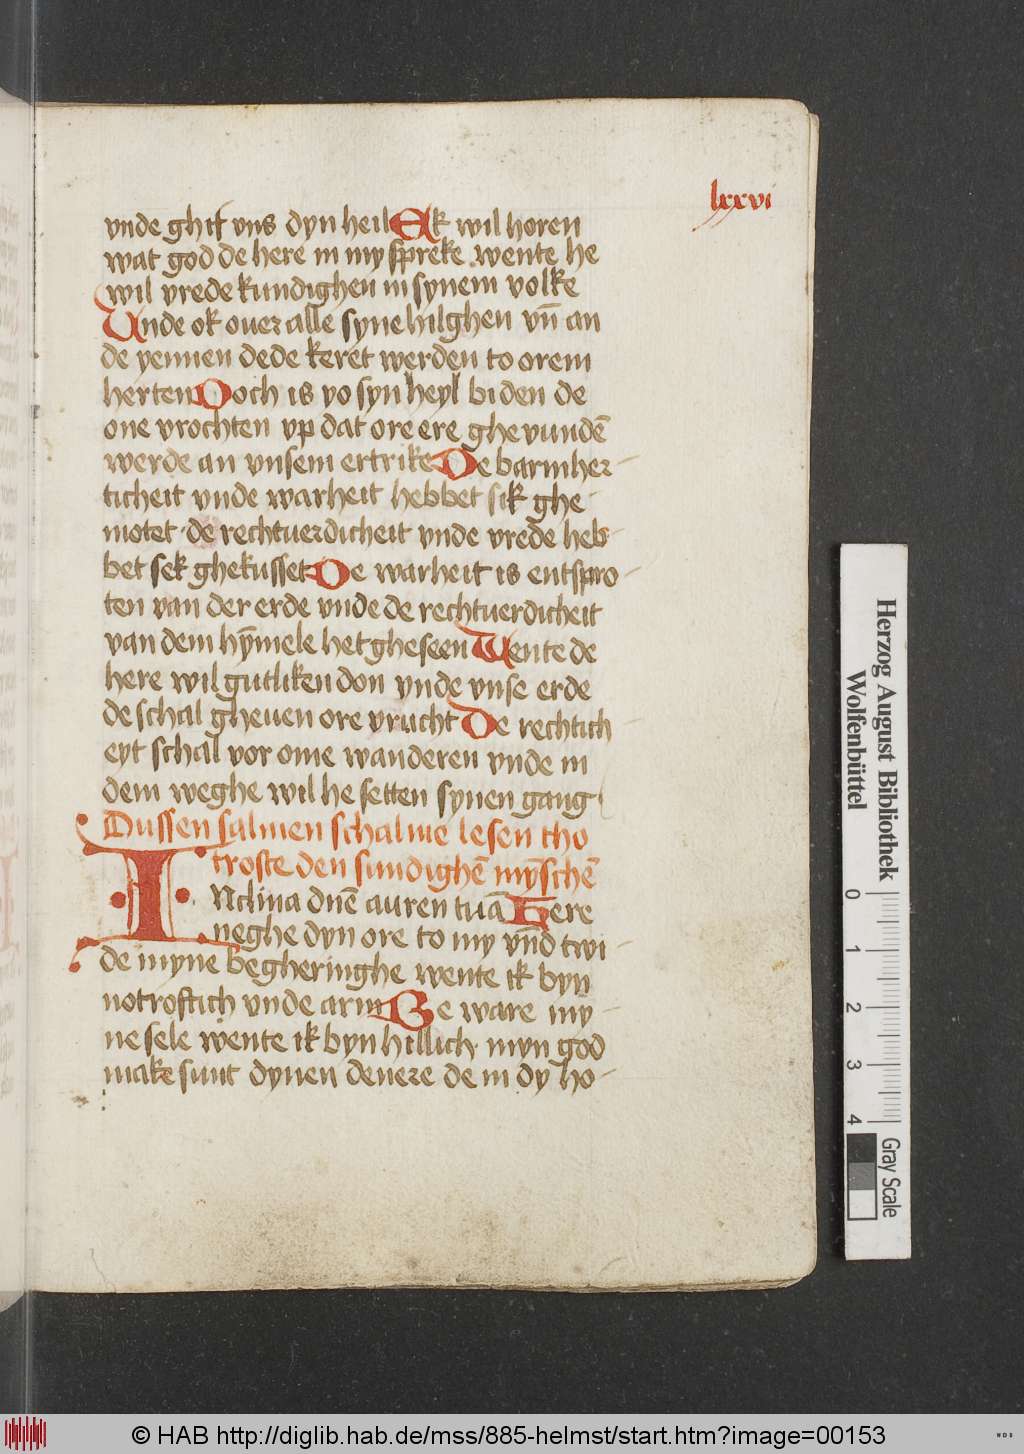 lxxvi
vnde ghif vns dyn heil Ek wil horen
wat god de here in my spreke wente he
wil vrede kundighen in synem volke
Unde ok ouer alle syne hilghen vn̄ an
de yennen dede keret werden to orem
herten Doch is yo syn heyl bi den de
one vrochten vp dat ore ere ghevundē
werde an vnsem ertrike De barmher
ticheit vnde warheit hebbet sik ghe
motet de rechtuerdicheit vnde vrede heb
bet sek ghekusset De warheit is entspro
ten van der erde vnde de rechtuerdicheit
van dem hȳmele het gheseen Wente de
here wil gutliken don vnde vnse erde
de schal gheuen ore vrucht De rechtich
eyt schal vor ome wanderen vnde in
dem weghe wil he setten synen gang
Dussen salmen schalme lesen tho
troste den sundighē mȳschē
INclina dnē auren tuā Here
neghe dyn ore to my vn̄d twi
de myne begheringhe wente ik byn
notroftich vnde arm Be ware my
ne sele wente ik byn hillich myn god
make sunt dynen denere de in dy ho
Herzog August Bibliothek
Wolfenbüttel
0 1 2 3 4
Gray Scale
© HAB http://diglib.hab.de/mss/885-helmst/start.htm?image=00153
WDB